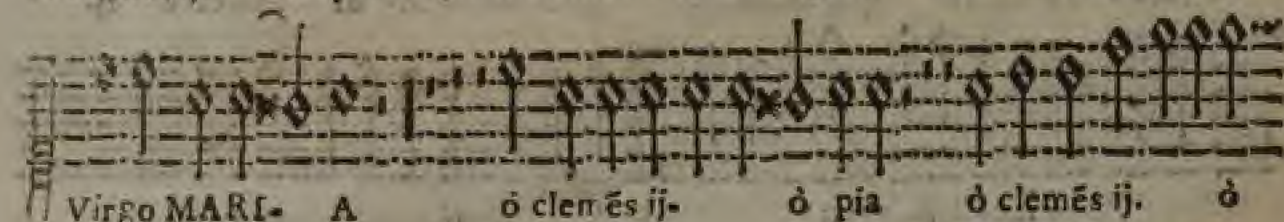 Virgo MARI- A ò clemẽs ij- ò pia ò clemẽs ij. ò